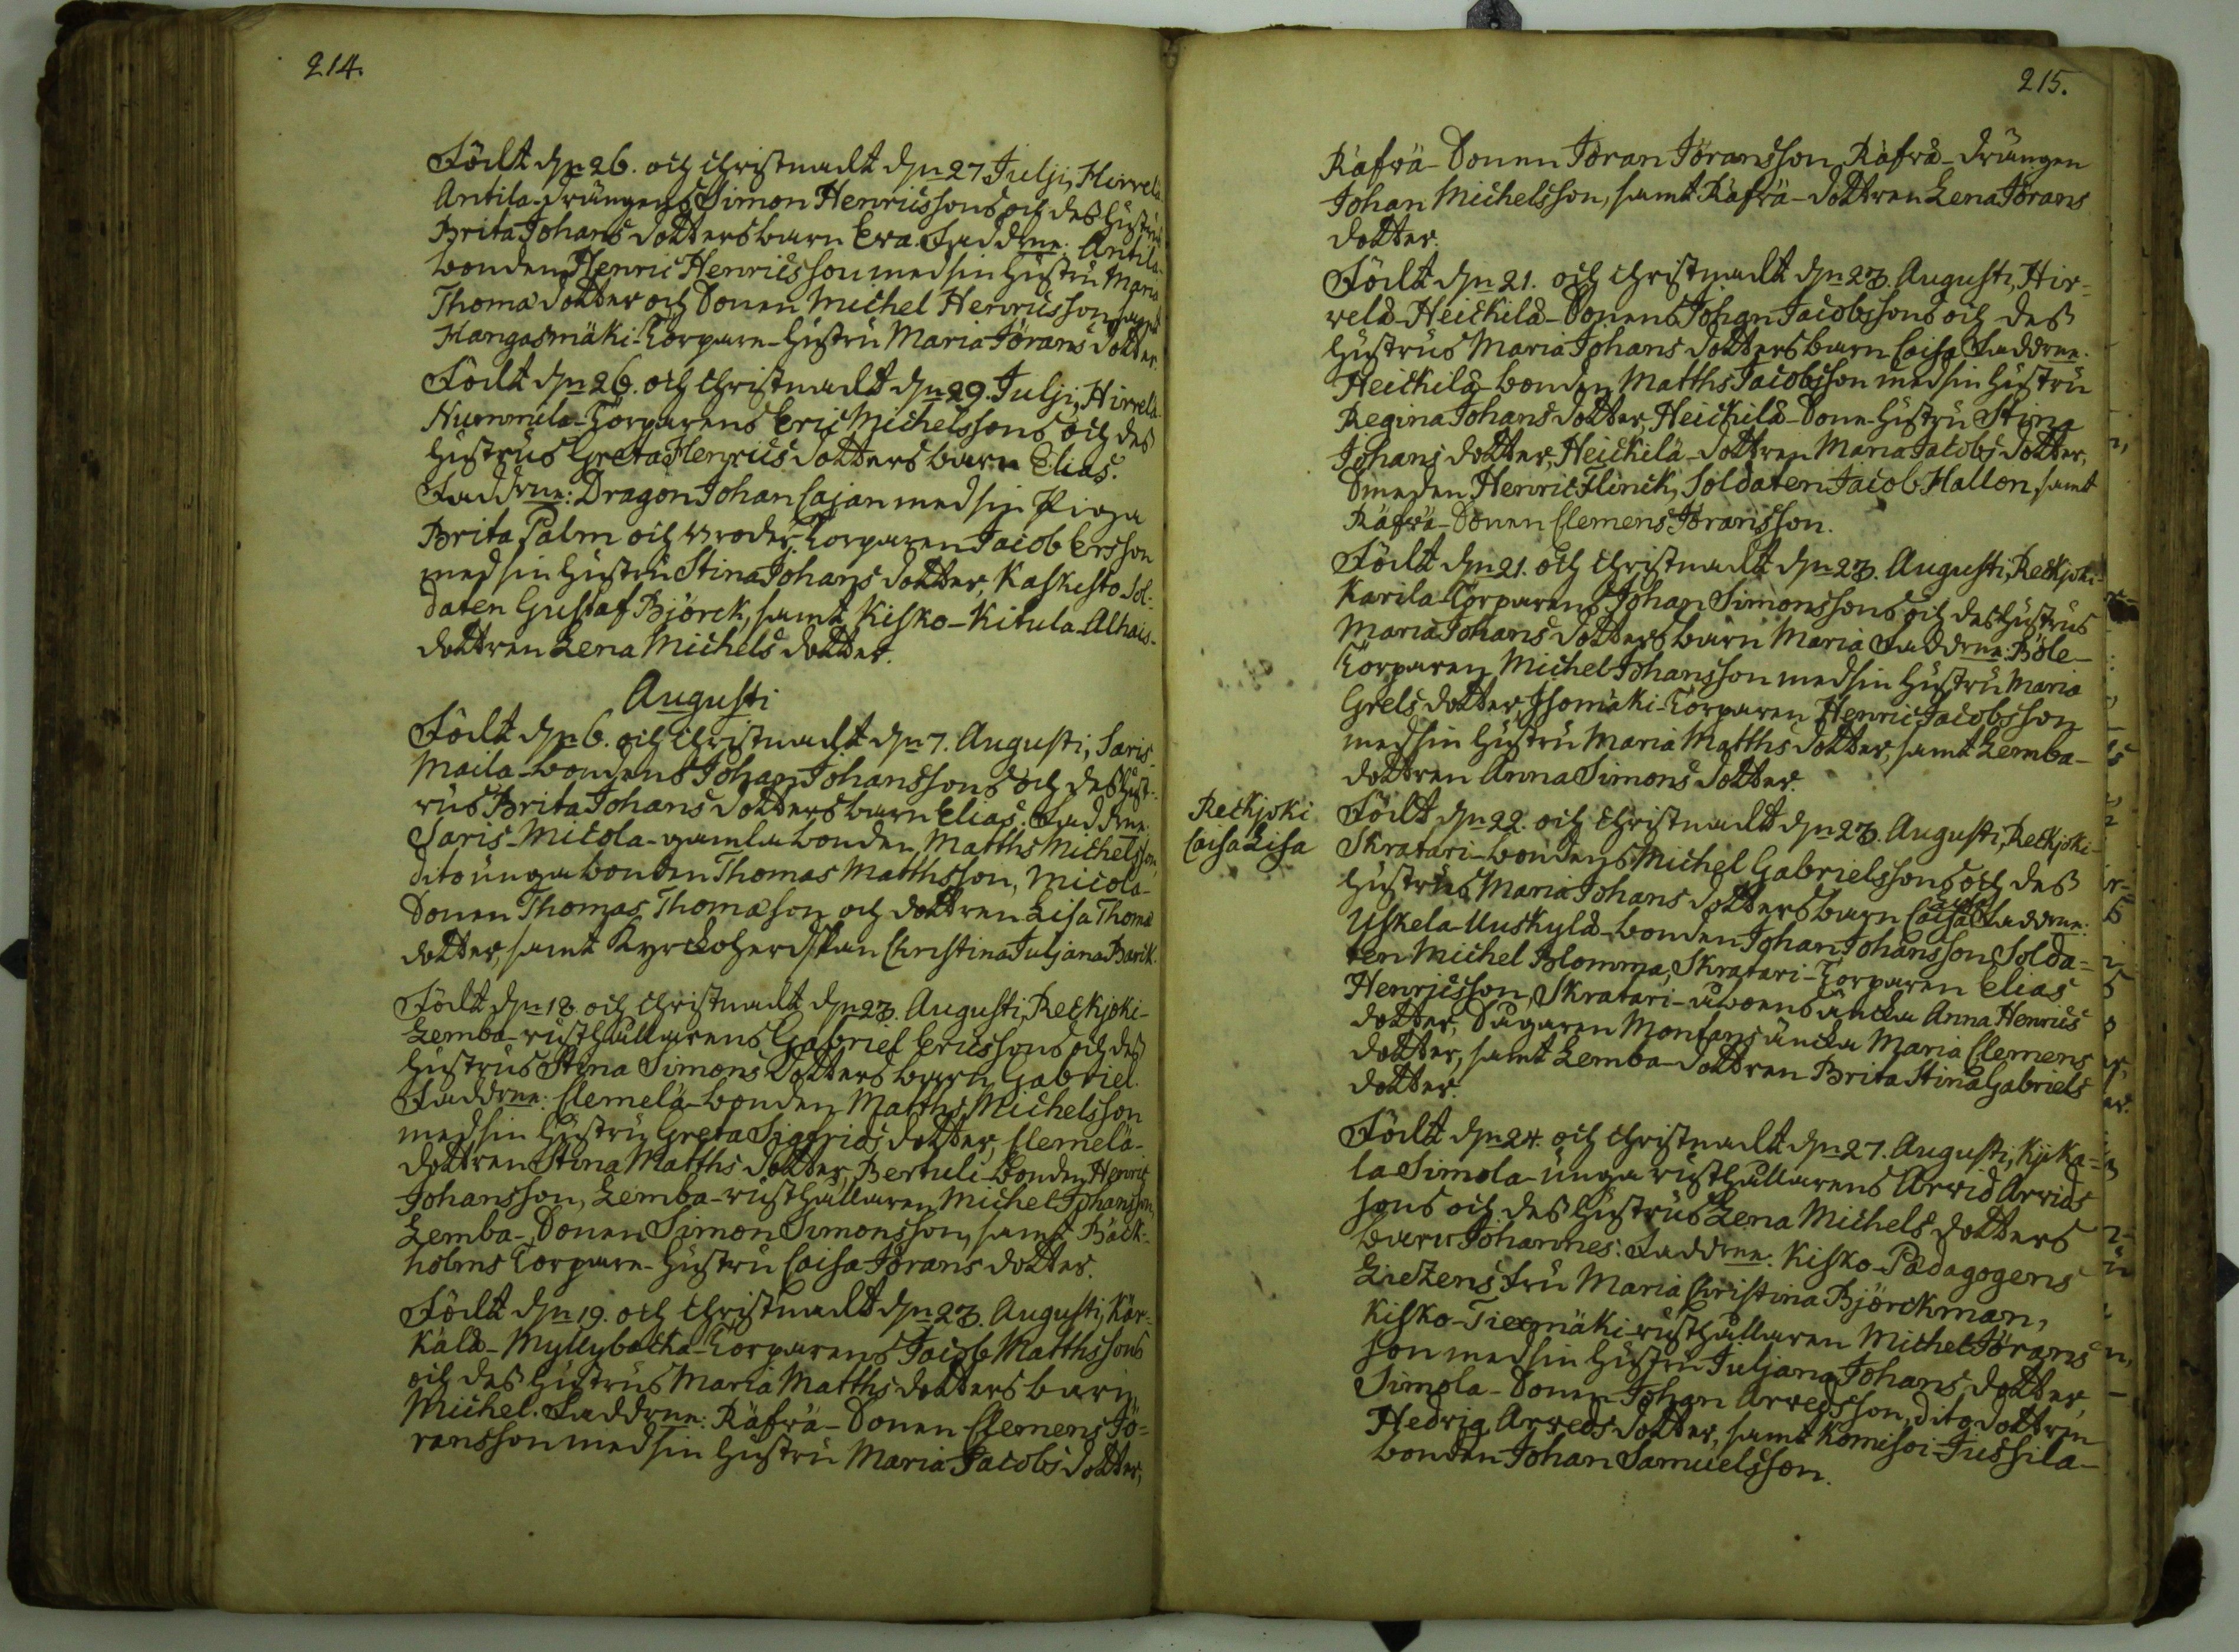 214.
Födt d. 26. och Christnadt d. 27 Julji, Hirvelä
Antila-drängens Simon Henricssons och des hustrus
Brita Johans dotters barn Eva. Faddrne: Antila-
bonden Henric Henricsson med sin hustru Maria
Thomæ dotter och Sonen Michel Henricsson, samt
Hangasmäki-Torpare-hustru Maria Jörans dotter.
Födt d. 26. och Christnadt d. 29. Julji, Hirvelä-
Nummila-Torparens Eric Michelssons och des
hustrus Greta Henrics dotters barn Elias.
Faddrne: Dragon Johan Cajan med sin Piga
Brita Palm och broder Torparen Jacob Ersson
med sin hustru Stina Johans dotter, Kaskisto Sol-
daten Gustaf Björck, samt Kisko-Kitula-Alhais-
dottren Lena Michels dotter.
Augusti
Födt d. 6. och Christnadt d. 7. Augusti, Saris-
Maila-bondens Johan Johanssons och des hust-
rus Brita Johans dotters barn Elias. Faddrne
Saris-Micola-gamla bonden Matths Michelsson,
dito unga bonden Thomas Matthsson, Micola-
Sonen Thomas Thomæson och dottren Lisa Thomæ
dotter, samt Kyrckoherdskan Christina Juljana Barck.
Födt d. 18. och Christnadt d. 23. Augusti, Reckjoki-
Lemba-rusthållarens Gabriel Ericssons och des
hustrus Stina Simons dotters barn Gabriel.
Faddrne: Clemelä-bonden Matths Michelsson
med sin hustru Greta Sigfrids dotter, Clemelä-
dottren Stina Matths dotter, Bertuli-bonden Henric
Johansson, Lemba-rusthållaren Michel Johansson,
Lemba-Sonen Simon Simonsson, samt Bäck-
holms Torpare-hustru Caisa Jörans dotter.
Födt d. 19. och Christnadt d. 23. Augusti, Kär-
kälä-Myllybacka-Torparens Jacob Matthssons
och des hustrus Maria Matths dotters barn
Michel. Faddrne: Räfvä-Sonen Clemens Jö-
ransson med sin hustru Maria Jacobs dotter,
215.
Räfvä-Sonen Jöran Jöransson, Räfvä-drängen
Johan Michelsson, samt Räfvä-dottren Lena Jörans
dotter.
Födt d. 21. och Christnadt d. 23. Augusti, Hir-
velä-Heickilä-Sonens Johan Jacobssons och des
hustrus Maria Johans dotters barn Caisa. Faddrne.
Heickilä-bonden Matths Jacobsson med sin hustru
Regina Johans dotter, Heickilä-Sone-hustru Stina
Johans dotter, Heickilä-dottren Maria Jacobs dotter,
Smeden Henric Flinck, Soldaten Jacob Hallon, samt
Räfvä-Sonen Clemens Jöransson.
Födt d. 21. och Christnadt d. 23. Augusti, Reckjoki-
Karila-Torparens Johan Simonssons och des hustrus
Maria Johans dotters barn Maria. Faddrne: Böle-
Torparen Michel Johansson med sin hustru Maria
Grels dotter, Isomäki-Torparen Henric Jacobsson
med sin hustru Maria Matths dotter, samt Lemba-
dottren Anna Simons dotter.
Reckjoki
Caisa Lisa
Födt d. 22. och Christnadt d. 23. Augusti, Reckjoki-
Skratari-bondens Michel Gabrielssons och des
hustrus Maria Johans dotters barn Caisa Faddrne:
Uskela-Uuskylä-bonden Johan Johansson, Solda-
ten Michel Blomma, Skratari-Torparen Elias
Henricsson, Skratari-åboens äncka Anna Henrics
dotter, Sågaren Montans äncka Maria Clemens
dotter, samt Lemba-dottren Brita Stina Gabriels
dotter.
Födt d. 24. och Christnadt d. 27. Augusti, Kjika-
la Simola-unga rusthållarens Arvid Arvids
sons och des hustrus Lena Michels dotters
barn Johannes. Faddrne: Kisko-Pædagogens
Lietzens fru Maria Christina Björckman,
Kisko-Tiexmäki-rusthållaren Michel Jörans
son med sin hustru Juljana Johans dotter,
Simola-Sonen Johan Arvedsson, dito dottren
Hedvig Arveds dotter, samt Komisoi-Jussila-
bonden Johan Samuelsson.